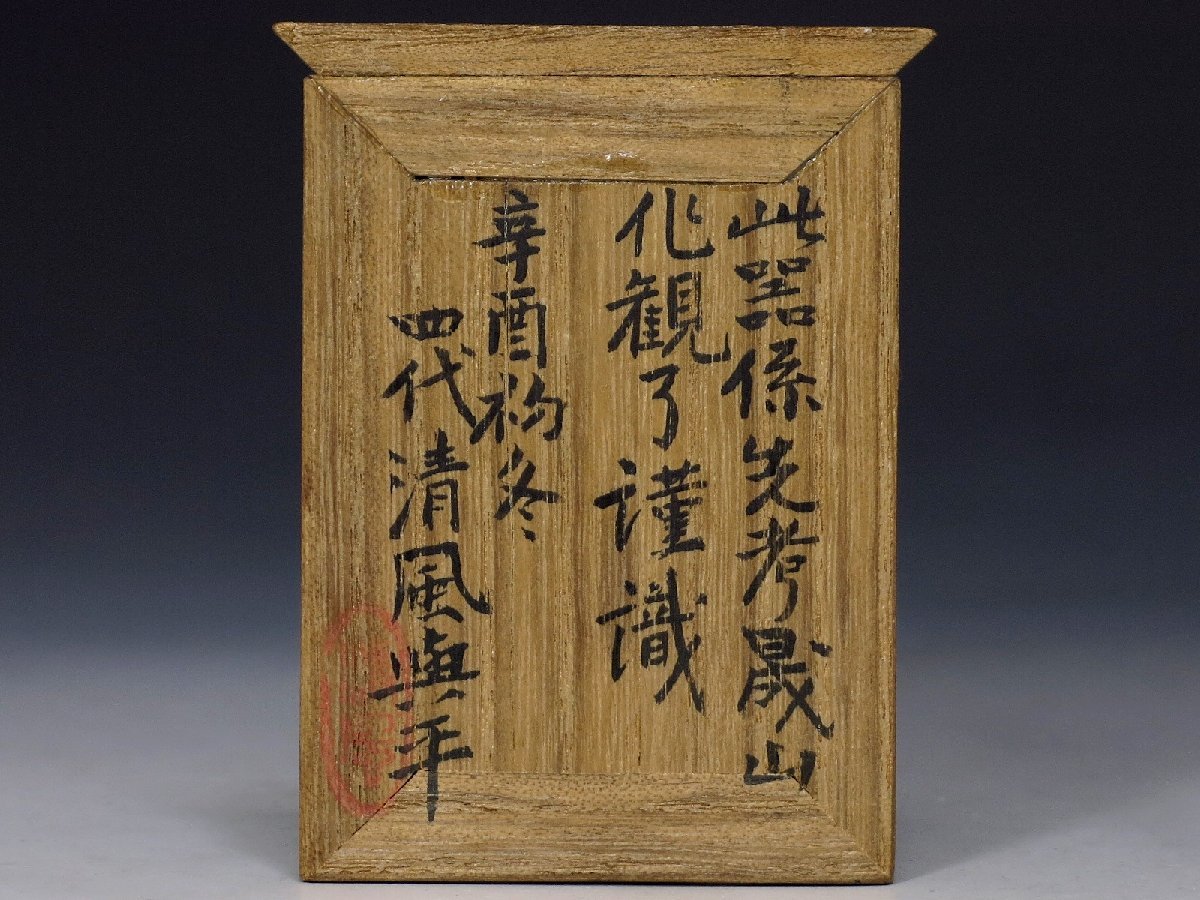 此器係先考晟山
作観了謹識
辛酉初冬
四代清風與平